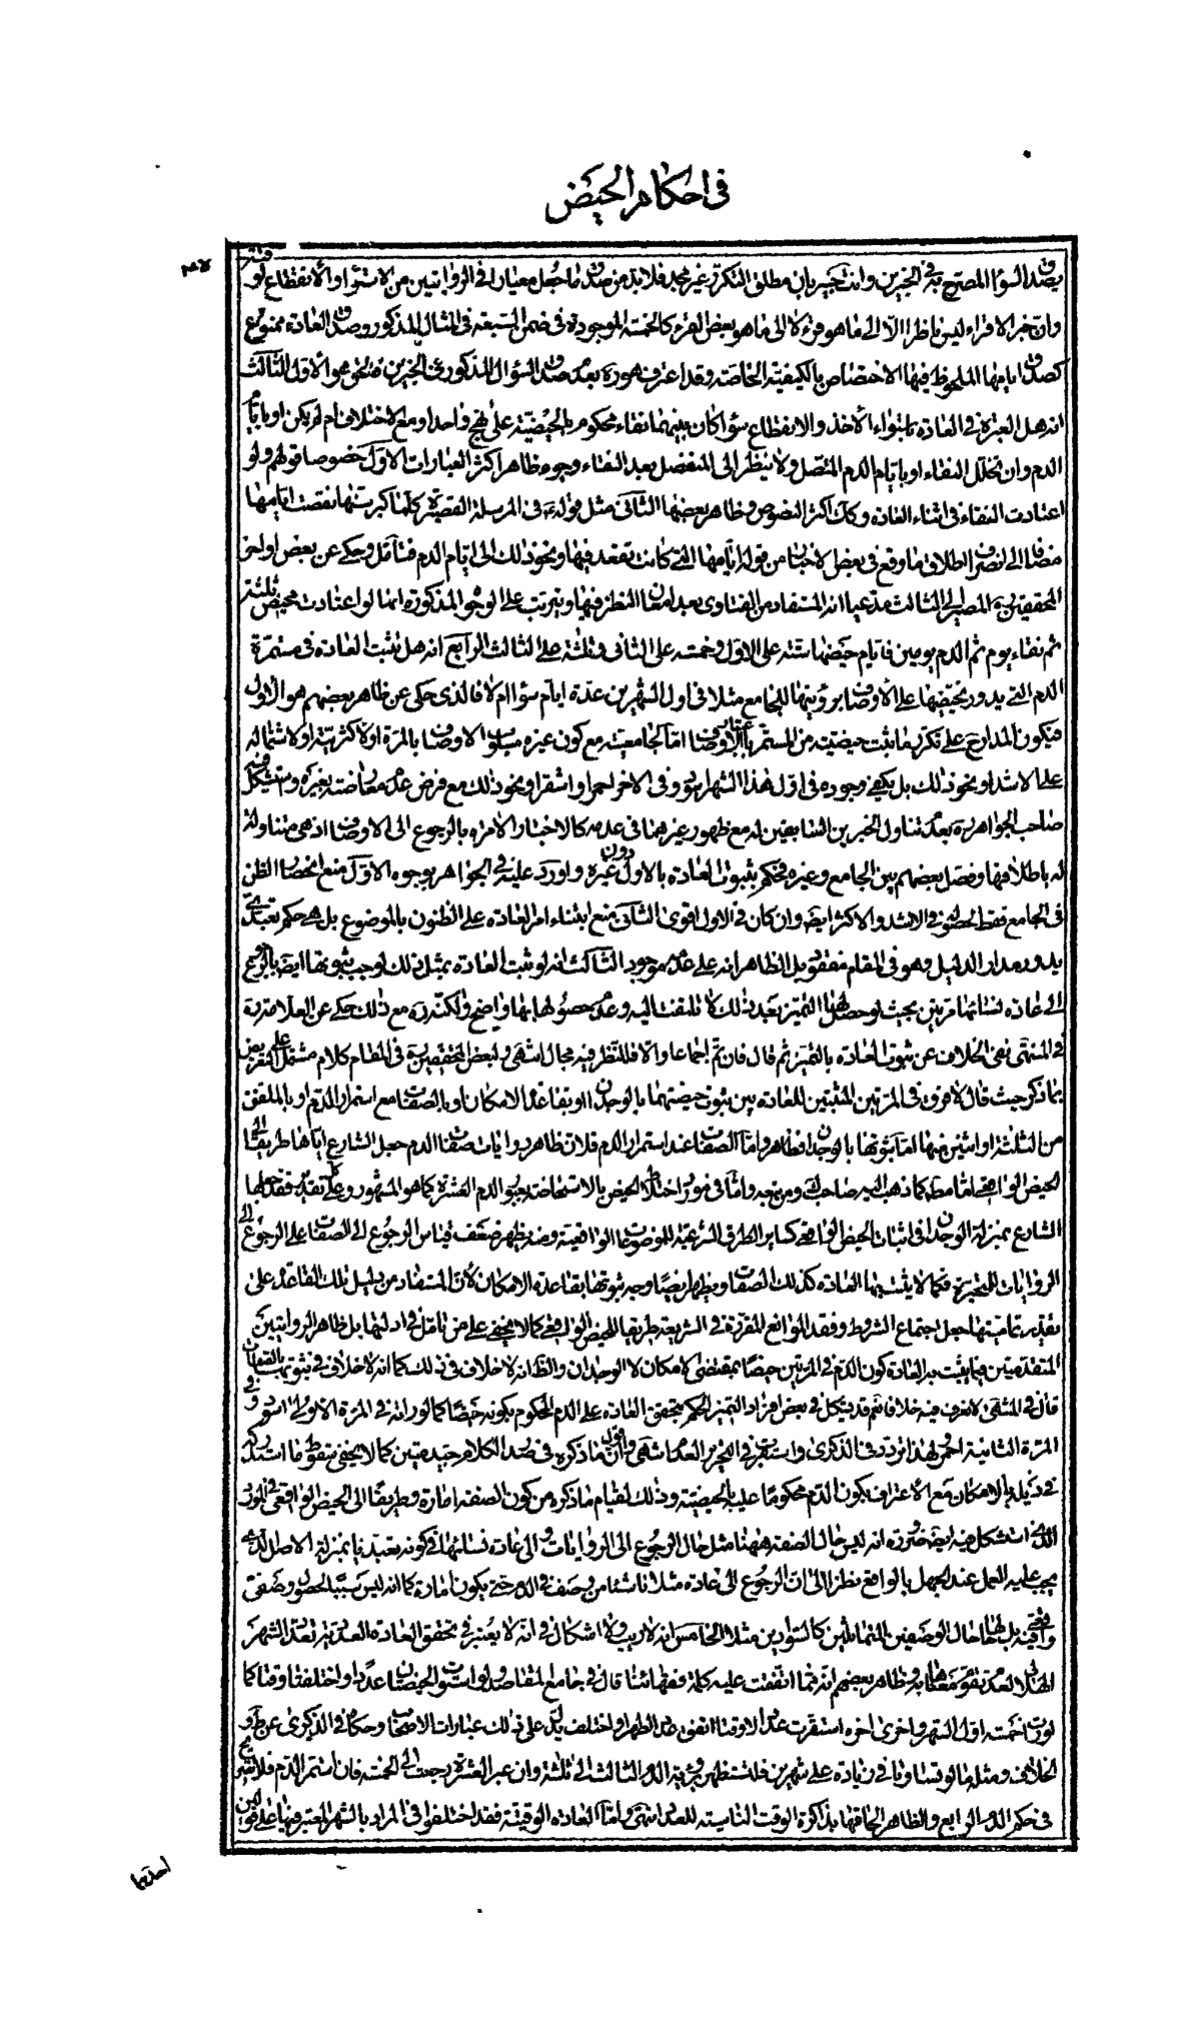 في احكام الحيض
يصدق السواء المصرح به في الخبرين وانت خبير بان مطلق التكرر غير مجد فلا بد من صدق ما جعل معيارا في الروايتين من الاستواء والانقطاع لو
وان خبر الاقراء ليس ناظرا الا الى ما هو قرء لا الى ما هو بعض القرء كالخمسة الموجودة في ضمن السبعة في المثال المذكور وصدق العادة ممنوع
كصدق ايامها الملحوظ فيها الاختصاص بالكيفية الخاصة وقد اعترف هو ره بعدم صدق السؤال المذكور في الخبرين فتحو هو الاول الثالث
انه هل العبرة في العادة باستواء الاخذ والانقطاع سواء كان بينهما نقاء محكوم بالحيضية على نهج واحد او مع الاختلاف ام لم يكن او بايام
الدم وان تخلل النقاء او بايام الدم المتصل ولا ينظر الى المنفصل بعد النقاء وجوه ظاهر اكثر العبارات الاول خصوصا قولهم ولو
اعتادت النقاء في اثناء العادة وكك اكثر النصوص وظاهر بعضها الثاني مثل قوله ع في المرسلة القصيرة كلما كبرت نقصت ايامها
مضافا الى انصراف اطلاق ما وقع في بعض الاخبار من قوله ايامها التي كانت تقعد فيها ونحو ذلك الى ايام الدم فتامل وحكي عن بعض اواخر
المحققين ره المصير الى الثالث مدعيا انه المستفاد من الفتاوى بعد امعان النظر فيها ويترتب على الوجوه المذكورة انها لو اعتادت بحيض ثلثة
ثم نقاء يوم ثم الدم يومين فايام حيضها ستة على الاول وخمسة على الثاني وثلثة على الثالث الرابع انه هل تثبت العادة في مستمرة
الدم التي يدور تحيضها على الاوصاف برؤيتها للجامع مثلا في اول الشهرين عدة ايام سواء ام لا فالذي حكي عن ظاهر بعضهم هو الاول
فيكون المدار على تكرر ما ثبت حيضيته من المستمر باعتبار الاوصاف اما لجامعيته مع كون غيره مسلوب الاوصاف بالمرة او لاكثريته او لاشتماله
على الاشد او نحو ذلك بل يكفي وجوده في اول هذا الشهر اسود وفي الاخر احمر او اشقر او نحو ذلك مع فرض عدم معارضته بغيره واستشكل فيه
صاحب الجواهر ره بعدم تناول الخبرين السابقين له مع ظهور غيرهما في عدمه كالاخبار الآمرة بالرجوع الى الاوصاف اذ هي متناولة
له باطلاقها وفصل بعضهم بين الجامع وغيره فحكم بثبوت العادة بالاول دون غيره واورد عليه في الجواهر بوجوه الاول منع انحصار الظن
في الجامع فقط لحصوله في الاشد والاكثر ايضا وان كان في الاول اقوى الثاني منع ابتناء امر العادة على الظنون بالموضوع بل هي حكم تعبدي
يدور مدار الدليل وهو في المقام مفقود بل الظاهر انه على عدمه موجود الثالث انه لو ثبت العادة بمثل ذلك لوجب ثبوتها ايضا بالرجوع
الى عادة نسائها مرتين بحيث لو حصل لها التميز بعد ذلك لا تلتفت اليه وعدم حصولها بها واضح ولكنه ره مع ذلك حكى عن العلامة ره
في المنتهى نفي الخلاف عن ثبوت العادة بالتميز ثم قال فان تم اجماعا والا فللنظر فيه مجال انتهى ولبعض المحققين ره في المقام كلام مشتمل على التعريض
بما ذكر حيث قال لا فرق في المرتين المثبتين للعادة بين ثبوت حيضتهما بالوجدان او بقاعدة الامكان او بالصفات مع استمرار الدم او بالملفق
من الثلثة او اثنين منها اما ثبوتها بالوجدان فظاهر واما الصفات عند استمرار الدم فلان ظاهر روايات صفات الدم جعل الشارع اياها طريقا الى
الحيض الواقعي اما مطلقا كما ذهب اليه صاحب المدارك ومن تبعه واما في مورد اختلاط الحيض بالاستحاضة بعبور الدم العشرة كما هو المشهور وعلى كل تقدير فقد جعلها
الشارع بمنزلة الوجدان في اثبات الحيض الواقعي كساير الطرق الشرعية للموضوعات الواقعية ومنه يظهر ضعف قياس الرجوع الى الصفات على الرجوع الى
الروايات للمتحيرة فكما لا يثبت بها العادة كذلك الصفات ويظهر ايضا وجه ثبوتها بقاعدة الامكان لان المستفاد من دليل تلك القاعدة على
تقدير تماميتها جعل اجتماع الشروط وفقد الموانع المقررة في الشريعة طريقا للحيض الواقعي كما لا يخفى على من تامل في ادلتها بل ظاهر الروايتين
المتقدمتين فيما يثبت به العادة كون الدم في المرتين حيضا بمقتضى الامكان لا الوجدان والظ انه لا خلاف في ذلك كما انه لا خلاف في ثبوتها بالصفات
قال في المنتهى لا نعرف فيه خلافا نعم قد يشكل في بعض افراد التميز الحكم بتحقق العادة على الدم المحكوم بكونه حيضا كما لو رات في المرة الاولى اسود وفي
المرة الثانية احمر ولهذا تردد في الذكرى واستقرب في التحرير العدم انتهى واقول ان ما ذكره في صدر الكلام جيد متين كما لا يخفى وبه سقوط ما استدركه
في ذيله بالامكان مع الاعتراف بكون الدم محكوما عليه بالحيضية وذلك لقيام ما ذكره من كون الصفة امارة وطريقا الى الحيض الواقعي في المورد
الذي استشكل فيه ايضا ضرورة انه ليس حال الصفة ههنا مثل حال الرجوع الى الروايات والى عادة نسائها في كونه تعبديا بمنزلة الاصل الذي
يجب عليه العمل عند الجهل بالواقع نظرا الى ان الرجوع الى عادة مثلا ناشئا من وصف في الدم حتى يكون امارة كما انه ليس سببا لحصول وصف في
واقعيته بل حالها حال الوصفين المتماثلين كالسوادين مثلا الخامس انه لا ريب ولا اشكال في انه لا يعتبر في تحقق العادة العددية تعدد الشهر
الهلالي لعدم تقوم معناها به وظاهر بعضهم انه مما اتفقت عليه كلمة فقهائنا قال في جامع المقاصد ولو استوت الحيضتان عددا واختلفتا وقتا كما
لو رات خمسة اول الشهر واخرى اخره استقرت عددا لا وقتا اتفق عدد الطهر او اختلف يدل على ذلك عبارات الاصحاب وحكاه في الذكرى عن ط و
الخلاف ومثله ما لو تساوتا في زيادة على شهرين فلتستظهر برؤية الدم الثالث الى ثلثة وان عبر العشرة رجعت الى الخمسة فان استمر الدم فلا تميز ح
في حكم الدم الرابع والظاهر الحاقها بذاكرة الوقت الناسية للعدد انتهى واما العادة الوقتية فقد اختلفوا في المراد بالشهر المعتبر فيها على قولين
احدهما